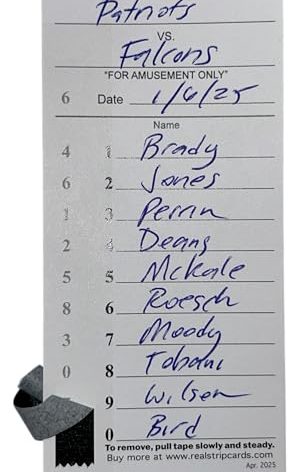 Patriots
VS.
Falcons
"FOR AMUSEMENT ONLY"
6 Date 1/6/25
Name
4 1 Brady
6 2 Jones
1 3 Perrin
2 4 Deans
5 5 McKale
8 6 Roesch
3 7 Moody
0 8 Tobani
9 Wilson
0 Bird
To remove, pull tape slowly and steady.
Buy more at www.realstripcards.com
Apr. 2025